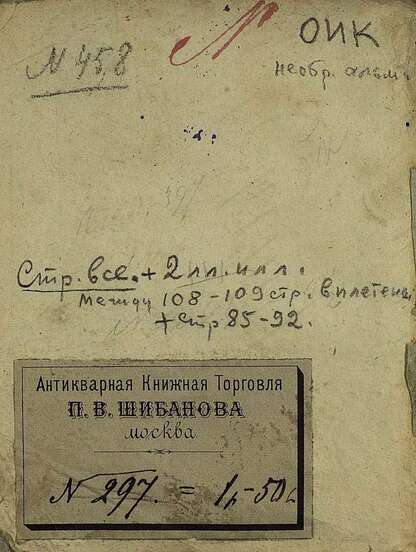 ОИК
№ 458
необр. альм.
Стр. все. + 2 лл. илл.
между 108-109 стр. вплетены
+ стр 85-92.
Антикварная Книжная Торговля
П. В. ШИБАНОВА
МОСКВА
№ 297. = 1 р - 50 к